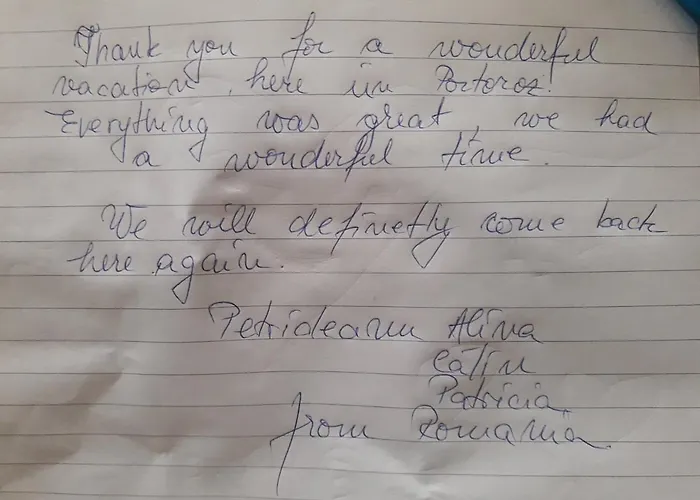 Thank you for a wonderful
vacation, here in Portoroz!
Everything was great, we had
a wonderful time.
We will definetly come back
here again.
Petrideanu Alina
Călin
Patricia
from Romania.